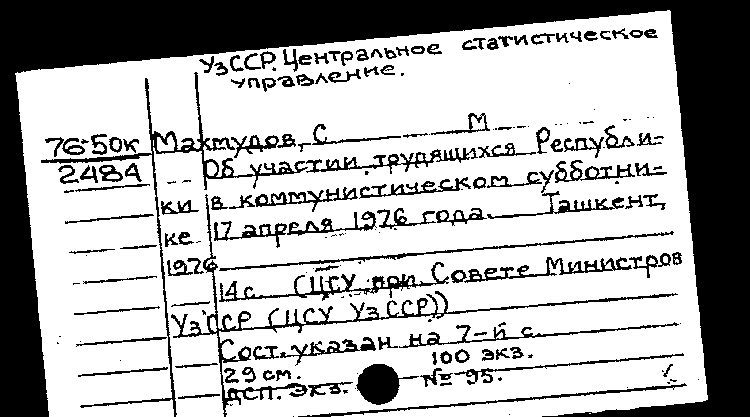 УзССР. Центральное статистическое
управление.
76-50к Махмудов, С М
2484 Об участии трудящихся Республи-
ки в коммунистическом субботни-
ке 17 апреля 1976 года. Ташкент,
1976
14 с. (ЦСУ при Совете Министров
УзССР (ЦСУ УзССР))
Сост. указан на 7-й с.
29 см. 100 экз.
ДСП. Экз. № 95.